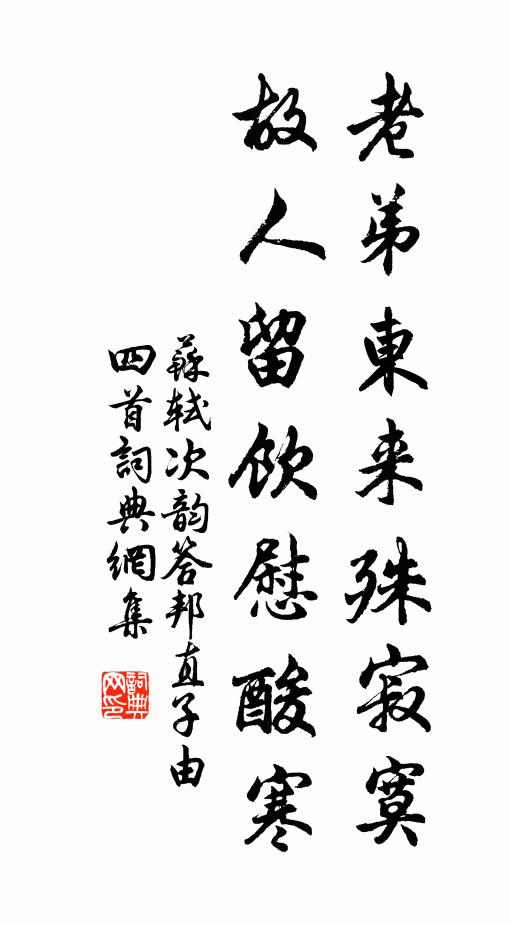 老弟東来殊寂寞
故人留飲慰酸寒
蘇軾次韵答邦直子由
四首詞典網集
詞典网印